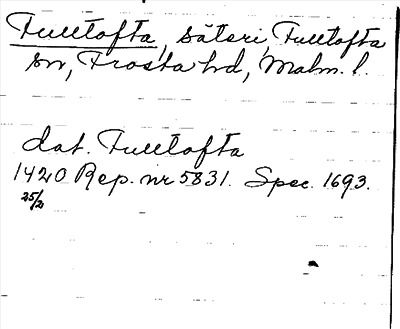 Fulltofta, säteri, Fulltofta
sn, Frosta hd, Malm. l.
dat. Fulltofta
1420 Rep. nr 5831. Spec. 1693.
25/2